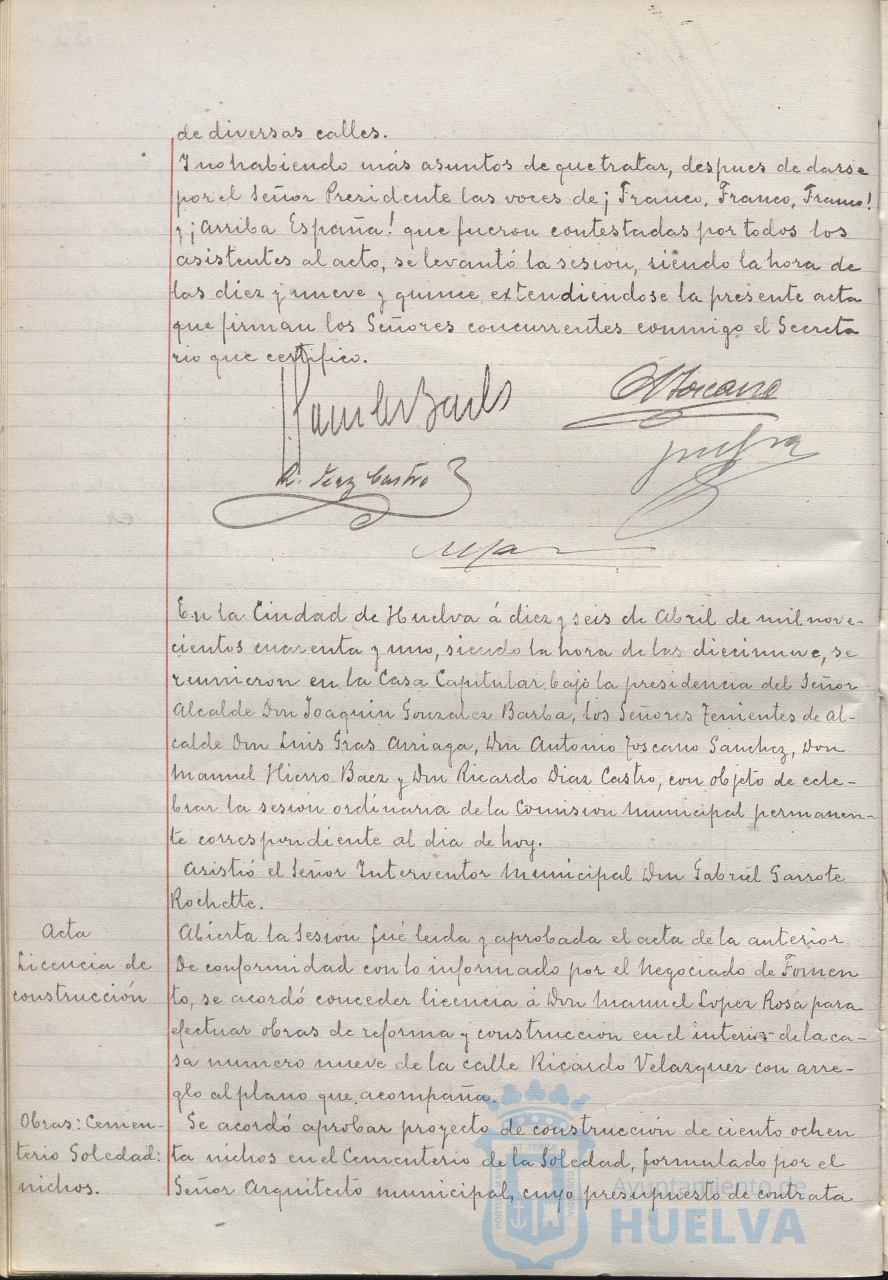 de diversas calles.
Y no habiendo más asuntos de que tratar, despues de darse
por el Señor Presidente las voces de ¡Franco, Franco, Franco!
y ¡Arriba España! que fueron contestadas por todos los
asistentes al acto, se levantó la sesion, siendo la hora de
las diez y nueve y quince extendiendose la presente acta
que firman los Señores concurrentes conmigo el Secreta
rio que certifico.
R. Diaz Castro
En la Ciudad de Huelva á diez y seis de Abril de mil nove-
cientos cuarenta y uno, siendo la hora de las diecinueve, se
reunieron en la Casa Capitular bajo la presidencia del Señor
Alcalde Don Joaquin Gonzalez Barba, los Señores Tenientes de Al-
calde Don Luis Gras Arriaga, Don Antonio Toscano Sanchez, Don
Manuel Hierro Baez y Don Ricardo Diaz Castro, con objeto de cele-
brar la sesion ordinaria de la Comision municipal permanen-
te correspondiente al dia de hoy.
Asistió el Señor Interventor municipal Don Gabriel Garrote
Rochette.
Acta
Abierta la Sesion fué leida y aprobada el acta de la anterior
Licencia de
construcción
De conformidad con lo informado por el Negociado de Fomen
to, se acordó conceder licencia á Don Manuel Lopez Rosa para
efectuar obras de reforma y construcción en el interior de la ca-
sa numero nueve de la calle Ricardo Velazquez con arre-
glo al plano que acompaña.
Obras: Cemen-
terio Soledad:
nichos.
Se acordó aprobar proyecto de construcción de ciento ochen
ta nichos en el Cementerio de la Soledad, formulado por el
Señor Arquitecto municipal, cuyo presupuesto de contrata
Ayuntamiento de
HUELVA